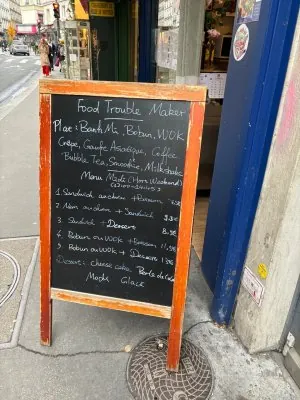 Food Trouble Maker
Plat: Banh Mi, Bobun, WOK
Crêpe, Gaufre Asiatique, Coffee
Bubble Tea, Smoothie, Milkshake
Menu Midi (Hors Weekend)
1. Sandwich au choix + Boisson
2. Nem au choix + Sandwich
3. Sandwich + Dessert 8.90€
4. Bobun ou WOK + Boisson
5. Bobun ou WOK + Dessert 13€
Dessert: cheese cake, Perle de Coco
Mochi Glacé